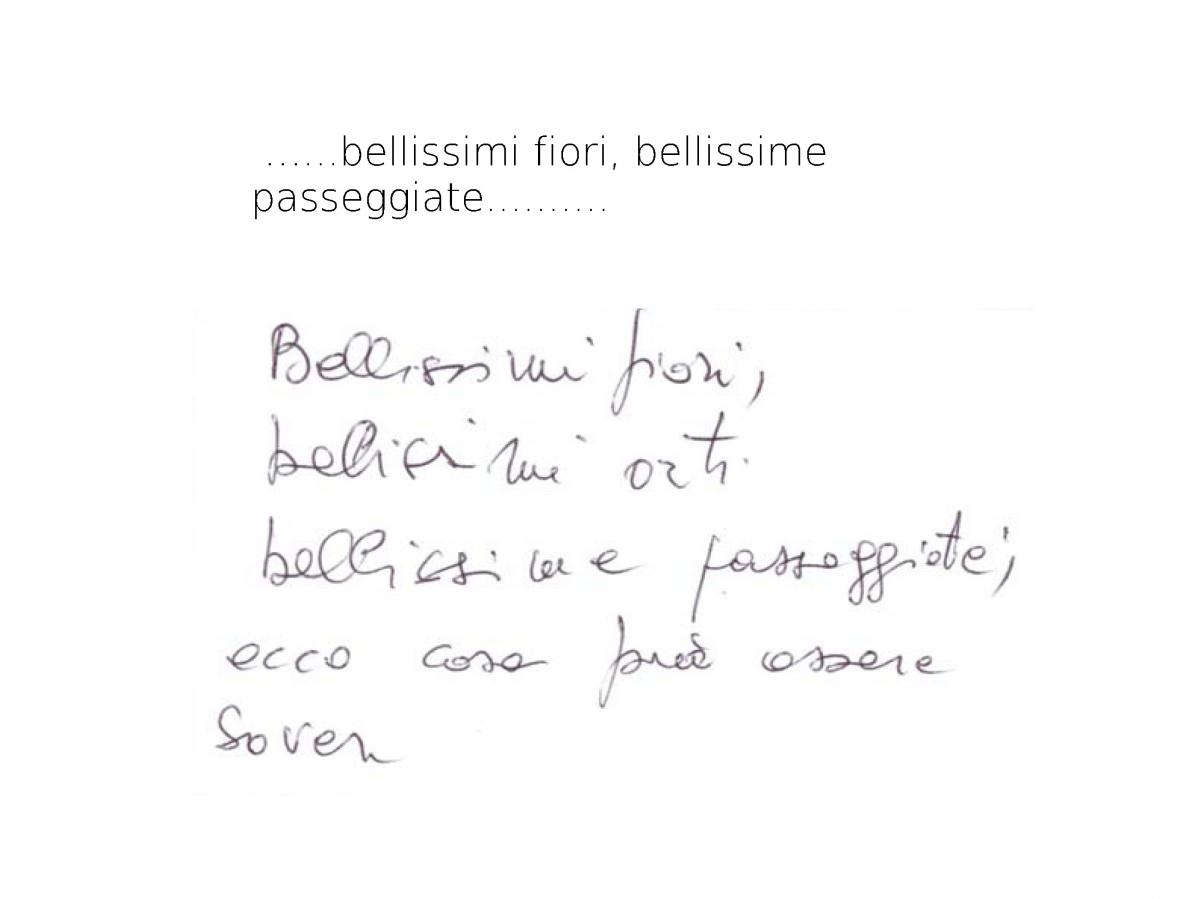 ......bellissimi fiori, bellissime
passeggiate..........
Bellissimi fiori,
belicimi orti
bellissime passeggiate,
ecco cosa può essere
Soven